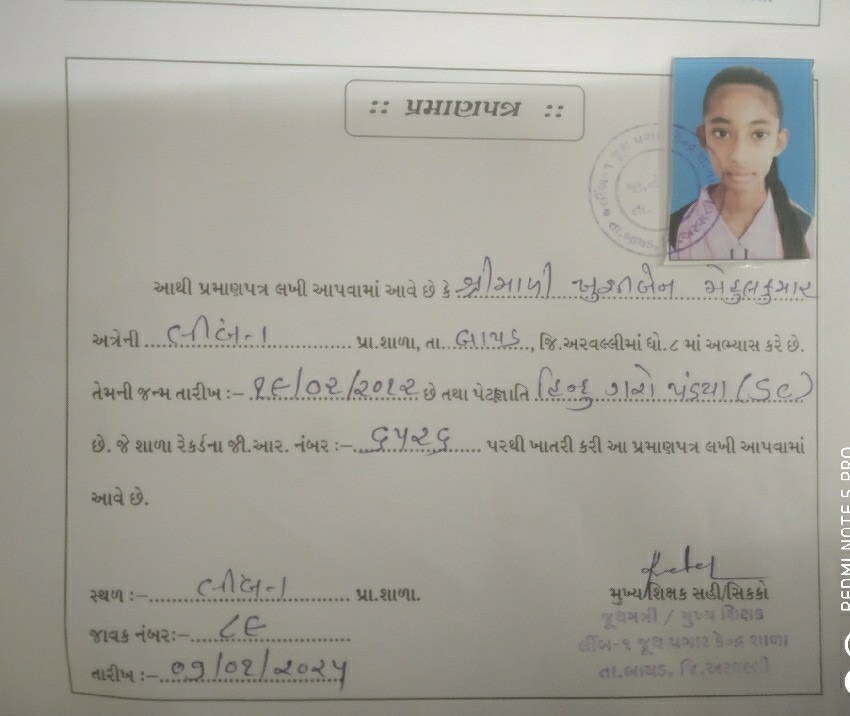 :: પ્રમાણપત્ર ::
આથી પ્રમાણપત્ર લખી આપવામાં આવે છે કે શ્રીમાળી ખુશીબેન મેહુલકુમાર
અત્રેની લીંબ-૧ પ્રા.શાળા, તા. બાયડ, જિ.અરવલ્લીમાં ધો.૮ માં અભ્યાસ કરે છે.
તેમની જન્મ તારીખ :- ૧૯/૦૨/૨૦૧૨ છે તથા પેટાજ્ઞાતિ હિન્દુ ગરો પંડયા (SC)
છે. જે શાળા રેકર્ડના જી.આર. નંબર :- ૬૫૨૬ પરથી ખાતરી કરી આ પ્રમાણપત્ર લખી આપવામાં
આવે છે.
સ્થળ :- લીંબ-૧ પ્રા.શાળા.
જાવક નંબર:- ૮૯
તારીખ :- ૦૭/૦૧/૨૦૨૫
મુખ્ય શિક્ષક સહી/સિકકો
જૂથમંત્રી / મુખ્ય શિક્ષક
લીંબ-૧ જૂથ પગાર કેન્દ્ર શાળા
તા.બાયડ, જિ.અરવલ્લી
REDMI NOTE 5 PRO